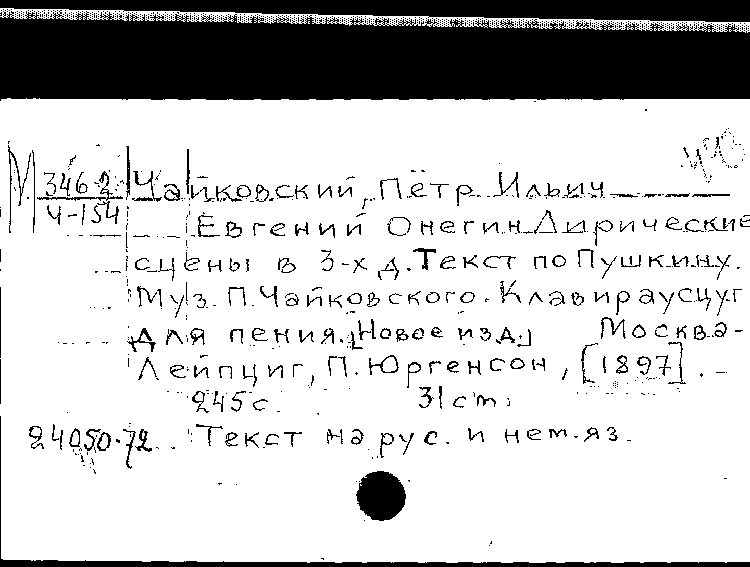 М 3462 Чайковский, Пётр Ильич
Ч-154 Евгений Онегин. Лирические
сцены в 3-х д. Текст по Пушкину.
Муз. П. Чайковского. Клавираусцуг
для пения. [Новое изд.] Москва-
Лейпциг, П. Юргенсон, [1897]. –
245 с. 31 cm.
24050.72 Текст на рус. и нем. яз.